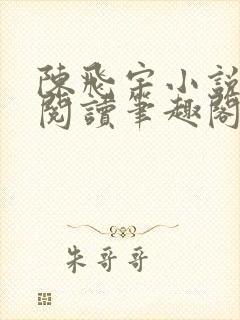 陳飛宇小說
閱讀筆趣閣
朱哥哥